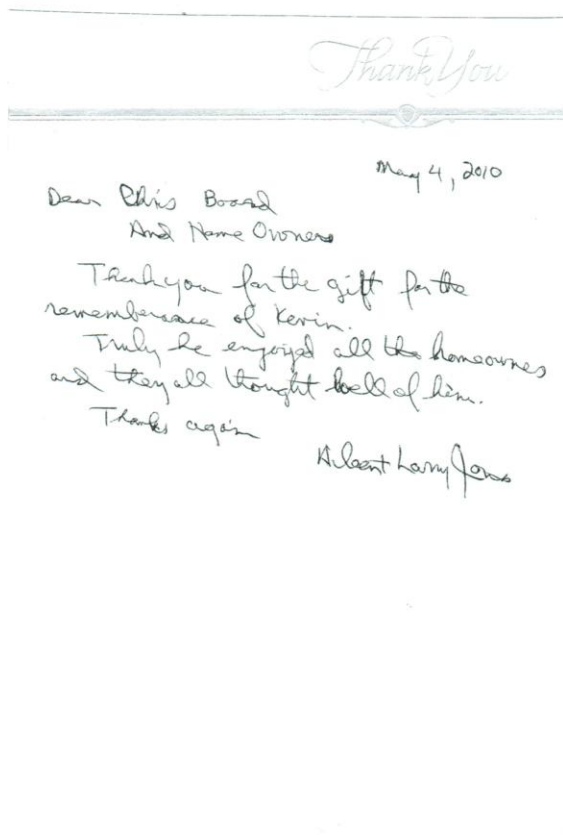 Thank You
May 4, 2010
Dear Chris Board
And Home Owners
Thank you for the gift for the
rememberance of Kevin.
Truly he enjoyed all the homeownes
and they all thought well of him.
Thanks again
Larry Jones